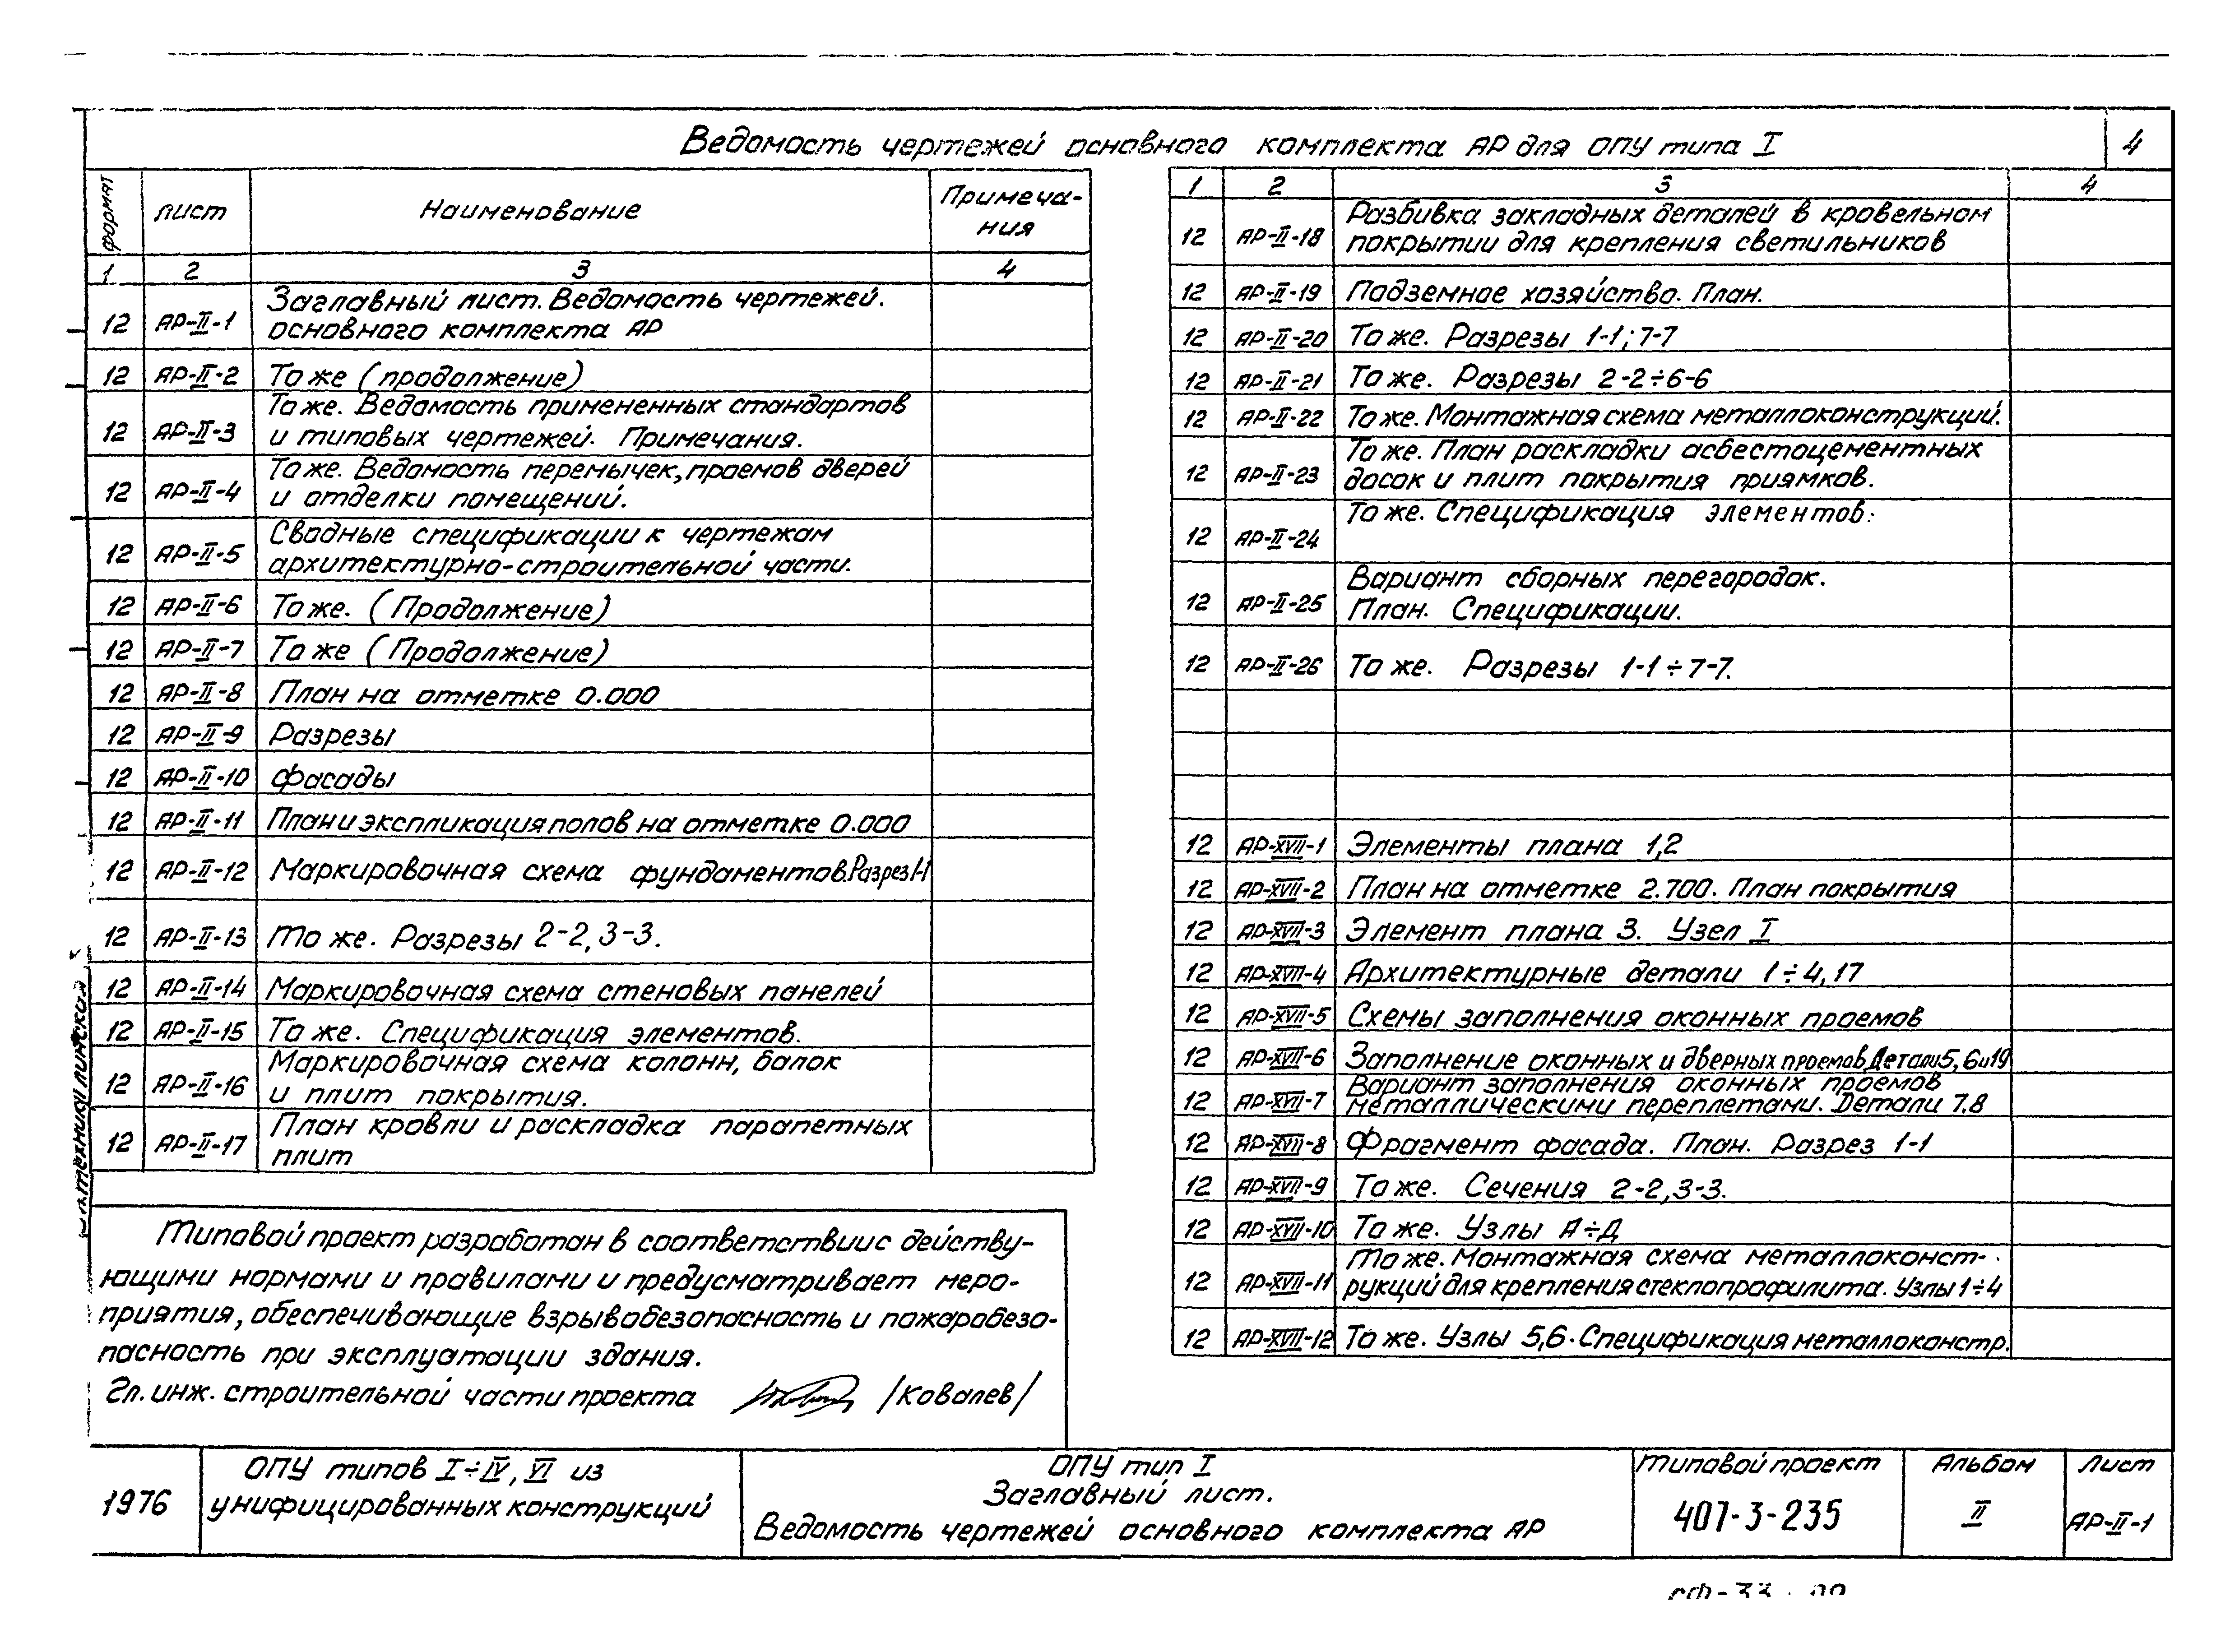 Ведомость чертежей основного комплекта АР для ОПУ типа I
4
формат лист Наименование Примеча-
ния
1 2 3 4
12 АР-II-1 Заглавный лист. Ведомость чертежей.
основного комплекта АР
12 АР-II-2 То же (продолжение)
12 АР-II-3 То же. Ведомость примененных стандартов
и типовых чертежей. Примечания.
12 АР-II-4 То же. Ведомость перемычек, проемов дверей
и отделки помещений.
12 АР-II-5 Сводные спецификации к чертежам
архитектурно-строительной части.
12 АР-II-6 То же. (Продолжение)
12 АР-II-7 То же (Продолжение)
12 АР-II-8 План на отметке 0.000
12 АР-II-9 Разрезы
12 АР-II-10 фасады
12 АР-II-11 План и экспликация полов на отметке 0.000
12 АР-II-12 Маркировочная схема фундаментов. Разрез 1-1
12 АР-II-13 То же. Разрезы 2-2, 3-3.
12 АР-II-14 Маркировочная схема стеновых панелей
12 АР-II-15 То же. Спецификация элементов.
12 АР-II-16 Маркировочная схема колонн, балок
и плит покрытия.
12 АР-II-17 План кровли и раскладка парапетных
плит
1 2 3 4
12 АР-II-18 Разбивка закладных деталей в кровельном
покрытии для крепления светильников
12 АР-II-19 Подземное хозяйство. План.
12 АР-II-20 То же. Разрезы 1-1; 7-7
12 АР-II-21 То же. Разрезы 2-2÷6-6
12 АР-II-22 То же. Монтажная схема металлоконструкций.
12 АР-II-23 То же. План раскладки асбестоцементных
досок и плит покрытия приямков.
12 АР-II-24 То же. Спецификация элементов.
12 АР-II-25 Вариант сборных перегородок.
План. Спецификации.
12 АР-II-26 То же. Разрезы 1-1÷7-7.
12 АР-XVII-1 Элементы плана 1,2
12 АР-XVII-2 План на отметке 2.700. План покрытия
12 АР-XVII-3 Элемент плана 3. Узел I
12 АР-XVII-4 Архитектурные детали 1÷4, 17
12 АР-XVII-5 Схемы заполнения оконных проемов
12 АР-XVII-6 Заполнение оконных и дверных проемов. Детали 5, 6 и 19
12 АР-XVII-7 Вариант заполнения оконных проемов
металлическими переплетами. Детали 7.8
12 АР-XVII-8 Фрагмент фасада. План. Разрез 1-1
12 АР-XVII-9 То же. Сечения 2-2, 3-3.
12 АР-XVII-10 То же. Узлы А÷Д
12 АР-XVII-11 То же. Монтажная схема металлоконст-
рукций для крепления стеклопрофилита. Узлы 1÷4
12 АР-XVII-12 То же. Узлы 5,6. Спецификация металлоконстр.
Типовой проект разработан в соответствии с действу-
ющими нормами и правилами и предусматривает меро-
приятия, обеспечивающие взрывобезопасность и пожаробезо-
пасность при эксплуатации здания.
Гл. инж. строительной части проекта /Ковалев/
1976
ОПУ типов I÷IV, VI из
унифицированных конструкций
ОПУ тип I
Заглавный лист.
Ведомость чертежей основного комплекта АР
Типовой проект
407-3-235
Альбом
II
Лист
АР-II-1